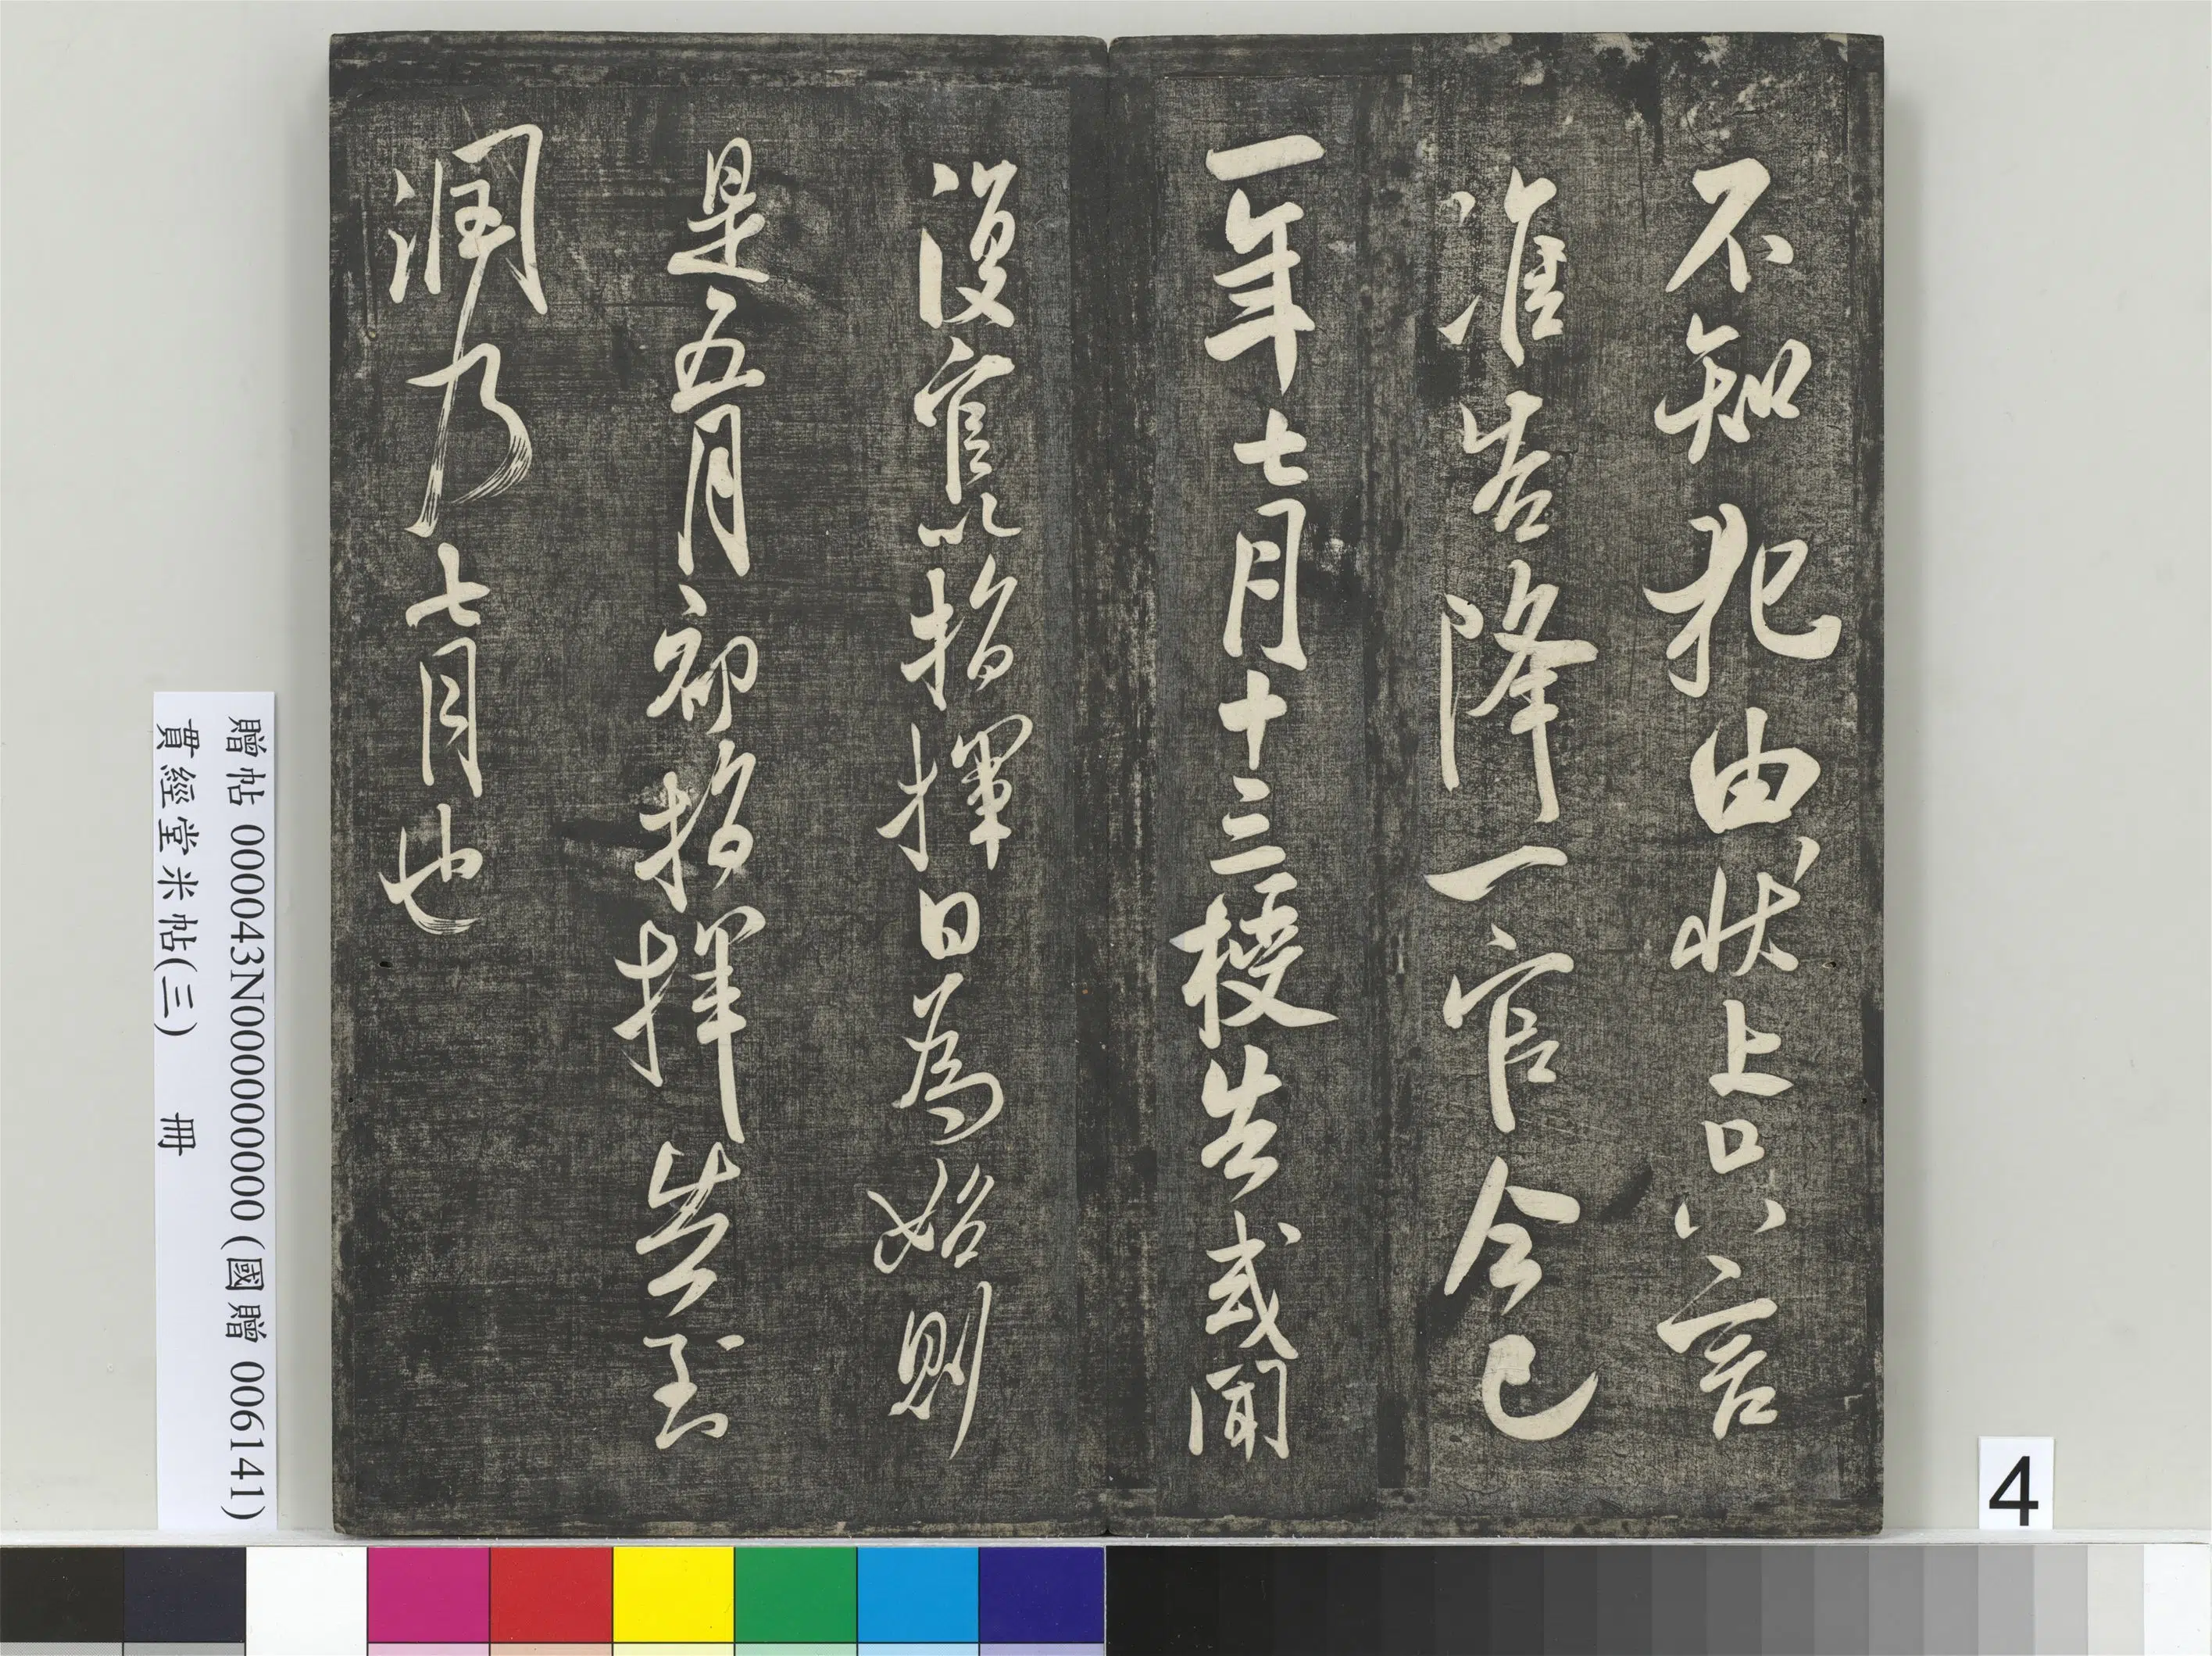 不知犯由狀上只言
准告降一官今已
一年七月十三授告或聞
復官以指揮日為始則
是五月初指揮告到
潤乃七月也
贈帖 000043N000000000 (國贈 006141)
貫經堂米帖(三) 冊
4